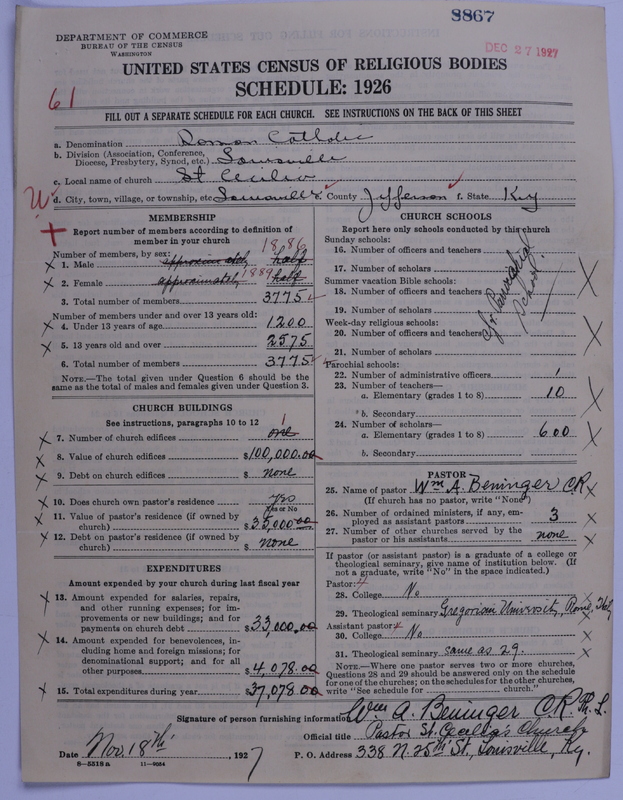 8867
DEPARTMENT OF COMMERCE
BUREAU OF THE CENSUS
WASHINGTON
DEC 27 1927
UNITED STATES CENSUS OF RELIGIOUS BODIES
SCHEDULE: 1926
61
FILL OUT A SEPARATE SCHEDULE FOR EACH CHURCH. SEE INSTRUCTIONS ON THE BACK OF THIS SHEET
a. Denomination Roman Catholic
b. Division (Association, Conference, Diocese, Presbytery, Synod, etc.) Louisville
c. Local name of church St Cecilia
d. City, town, village, or township, etc. Louisville e. County Jefferson f. State Ky
MEMBERSHIP
Report number of members according to definition of
member in your church
Number of members, by sex:
1. Male approximately half 1886
2. Female approximately half 1889
3. Total number of members 3775
Number of members under and over 13 years old:
4. Under 13 years of age 1200
5. 13 years old and over 2575
6. Total number of members 3775
NOTE.—The total given under Question 6 should be the
same as the total of males and females given under Question 3.
CHURCH BUILDINGS
See instructions, paragraphs 10 to 12
7. Number of church edifices one 1
8. Value of church edifices $100,000.00
9. Debt on church edifices $ none
10. Does church own pastor's residence yes
Yes or No
11. Value of pastor's residence (if owned by
church) $35,000.00
12. Debt on pastor's residence (if owned by
church) $ none
EXPENDITURES
Amount expended by your church during last fiscal year
13. Amount expended for salaries, repairs,
and other running expenses; for im-
provements or new buildings; and for
payments on church debt $33,000.00
14. Amount expended for benevolences, in-
cluding home and foreign missions; for
denominational support; and for all
other purposes $4,078.00
15. Total expenditures during year $37,078.00
CHURCH SCHOOLS
Report here only schools conducted by this church
Sunday schools:
16. Number of officers and teachers
17. Number of scholars
Summer vacation Bible schools:
18. Number of officers and teachers
19. Number of scholars
Week-day religious schools:
20. Number of officers and teachers
21. Number of scholars
Parochial School
Parochial schools:
22. Number of administrative officers 1
23. Number of teachers—
a. Elementary (grades 1 to 8) 10
b. Secondary
24. Number of scholars—
a. Elementary (grades 1 to 8) 600
b. Secondary
PASTOR
25. Name of pastor Wm A. Beninger C.R.
(If church has no pastor, write "None")
26. Number of ordained ministers, if any, em-
ployed as assistant pastors 3
27. Number of other churches served by the
pastor or his assistants none
If pastor (or assistant pastor) is a graduate of a college or
theological seminary, give name of institution below. (If
not a graduate, write "No" in the space indicated.)
Pastor:
28. College No
29. Theological seminary Gregorian University, Rome, Italy
Assistant pastor:
30. College No
31. Theological seminary same as 29.
NOTE.—Where one pastor serves two or more churches,
Questions 28 and 29 should be answered only on the schedule
for one of the churches; on the schedules for the other churches,
write "See schedule for church."
Signature of person furnishing information Wm A. Beninger C.R. Th. L.
Official title Pastor St. Cecilia's Church
Date Nov. 18th, 1927 P. O. Address 338 N. 25th St., Louisville, Ky.
8—5318a 11—9054